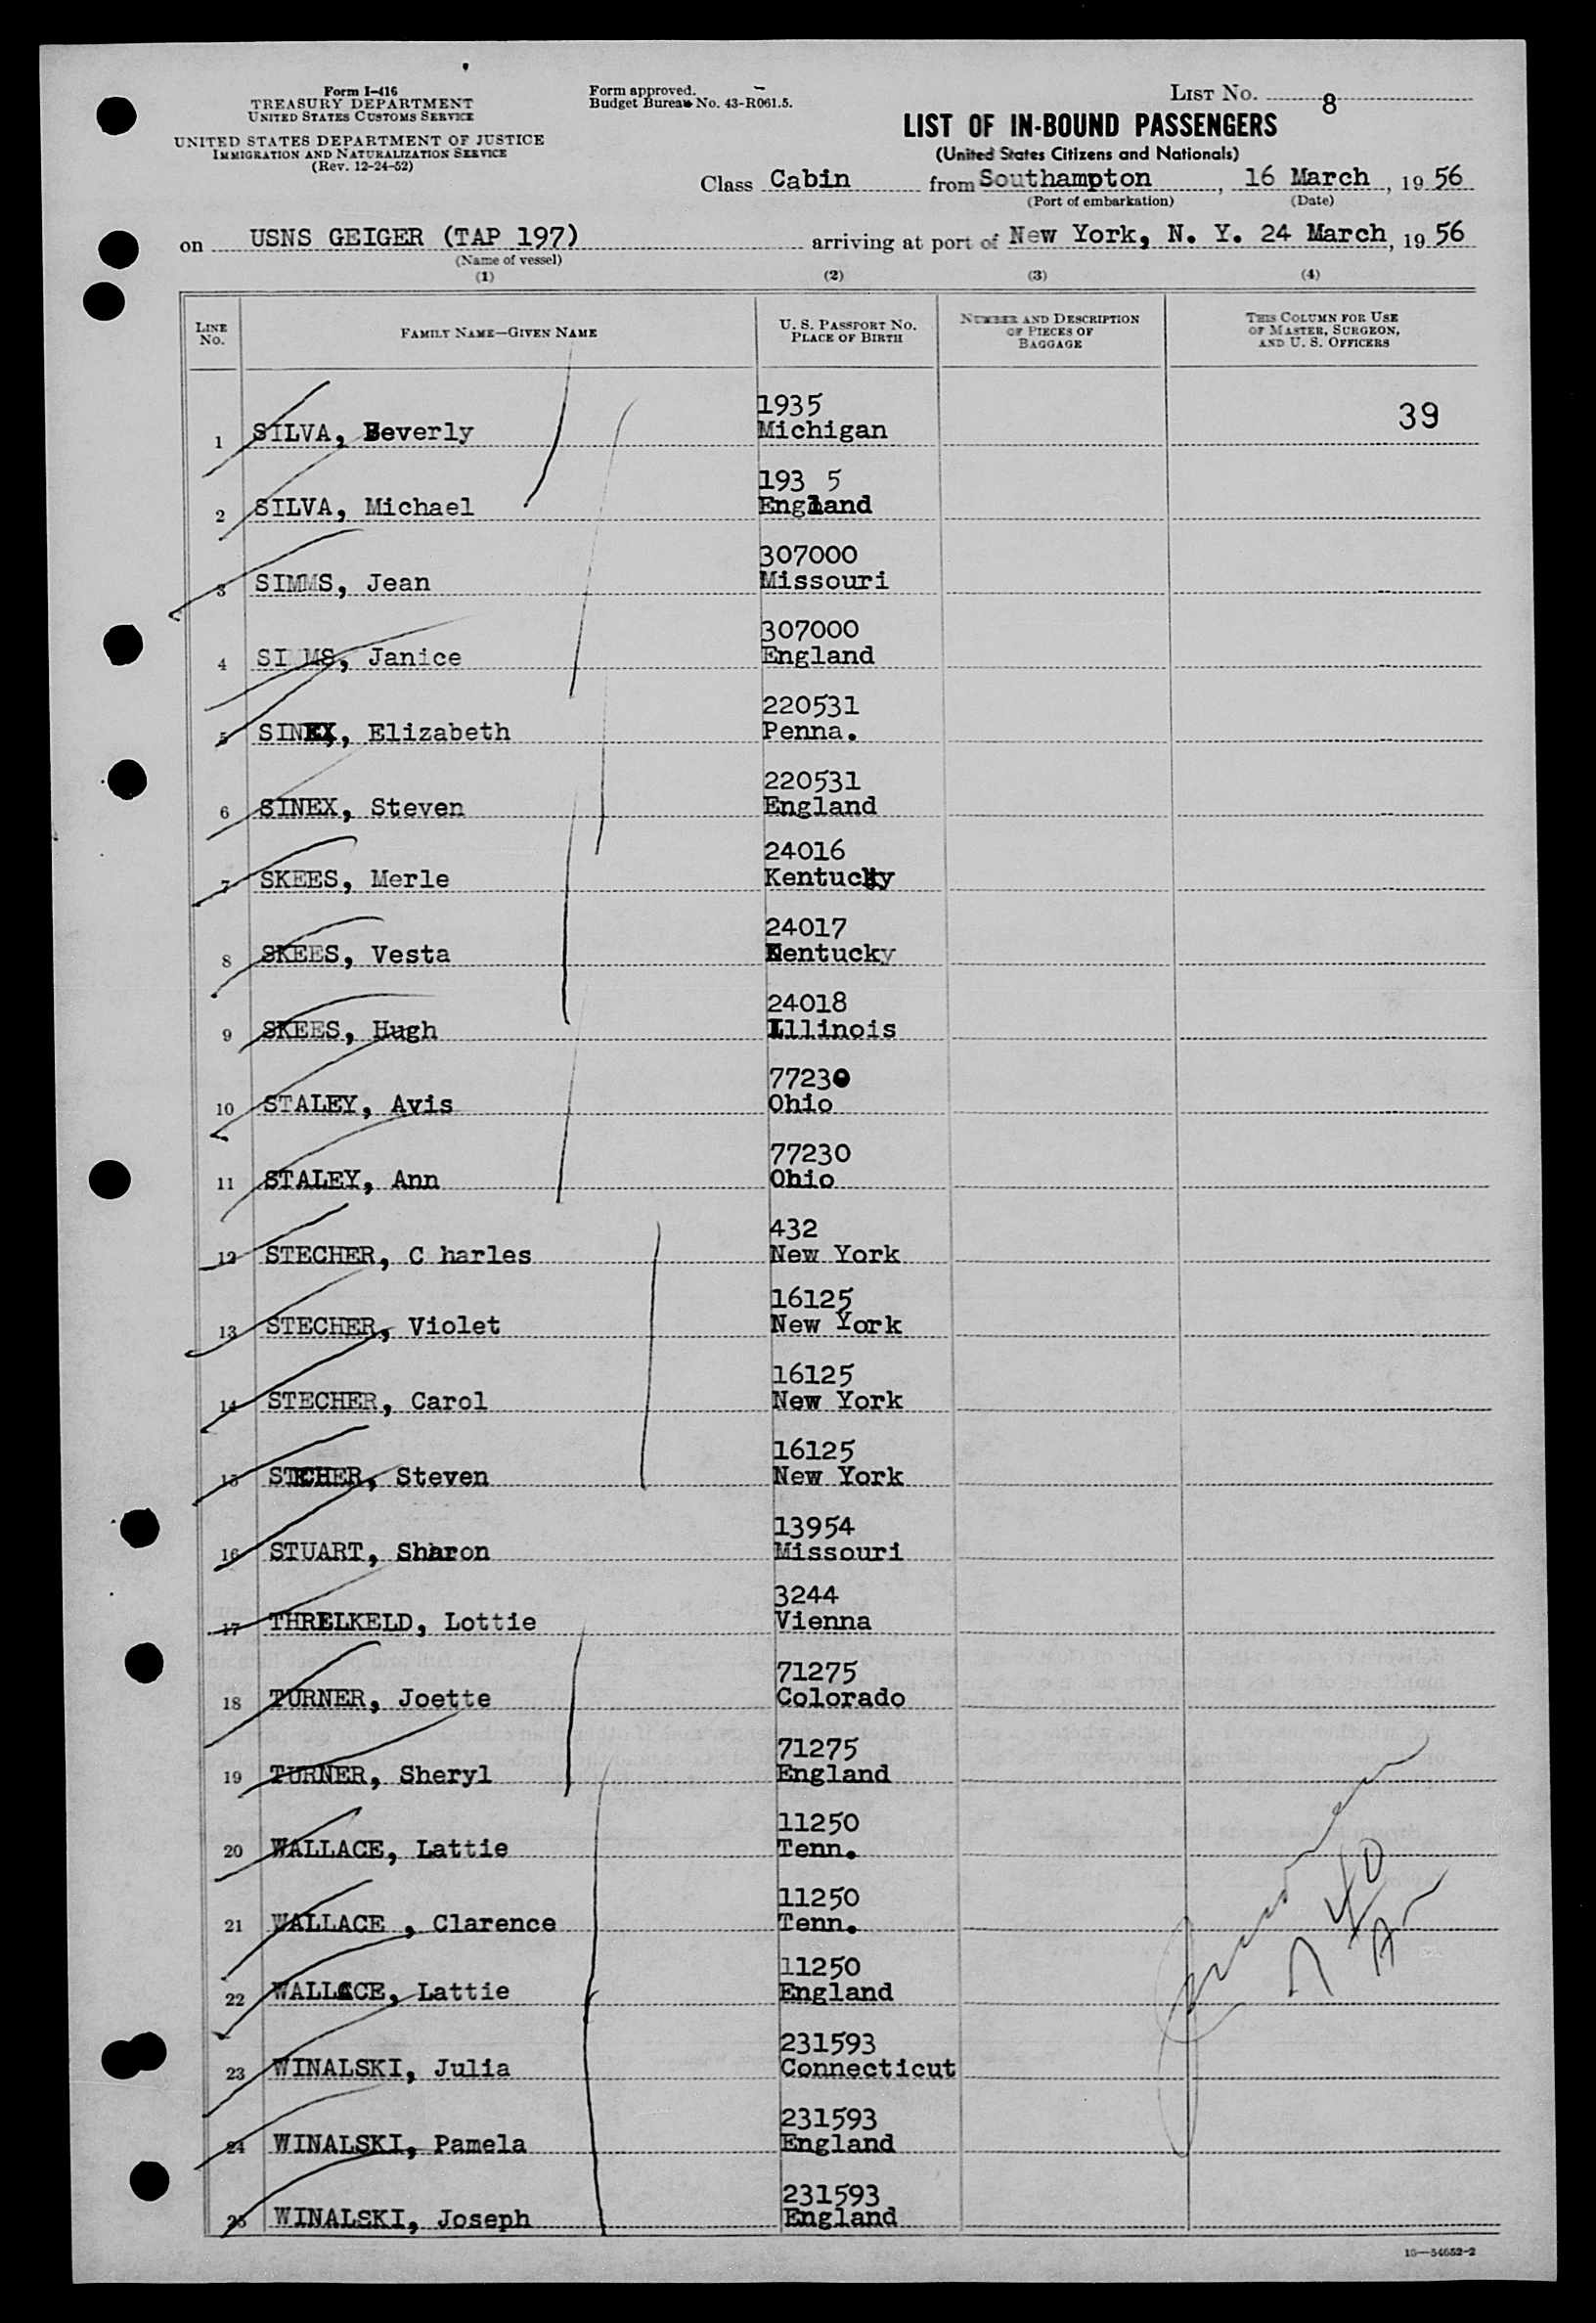 Form I-416
TREASURY DEPARTMENT
UNITED STATES CUSTOMS SERVICE
UNITED STATES DEPARTMENT OF JUSTICE
IMMIGRATION AND NATURALIZATION SERVICE
(Rev. 12-24-52)
Form approved.
Budget Bureau No. 43-R061.5.
LIST NO. 8
LIST OF IN-BOUND PASSENGERS
(United States Citizens and Nationals)
Class Cabin from Southampton, 16 March, 19 56
(Port of embarkation) (Date)
on USNS GEIGER (TAP 197) arriving at port of New York, N. Y. 24 March, 19 56
(Name of vessel)
(1) (2) (3) (4)
LINE NO. FAMILY NAME—GIVEN NAME U. S. PASSPORT NO. PLACE OF BIRTH NUMBER AND DESCRIPTION OF PIECES OF BAGGAGE THIS COLUMN FOR USE OF MASTER, SURGEON, AND U. S. OFFICERS
1935 39
1 SILVA, Beverly Michigan
193 5
2 SILVA, Michael England
307000
3 SIMMS, Jean Missouri
307000
4 SI MS, Janice England
220531
5 SINEX, Elizabeth Penna.
220531
6 SINEX, Steven England
24016
7 SKEES, Merle Kentucky
24017
8 SKEES, Vesta Kentucky
24018
9 SKEES, Hugh Illinois
77230
10 STALEY, Avis Ohio
77230
11 STALEY, Ann Ohio
432
12 STECHER, C harles New York
16125
13 STECHER, Violet New York
16125
14 STECHER, Carol New York
16125
15 STECHER, Steven New York
13954
16 STUART, Sharon Missouri
3244
17 THRELKELD, Lottie Vienna
71275
18 TURNER, Joette Colorado
71275
19 TURNER, Sheryl England
11250
20 WALLACE, Lattie Tenn.
11250
21 WALLACE , Clarence Tenn.
11250
22 WALLACE, Lattie England
231593
23 WINALSKI, Julia Connecticut
231593
24 WINALSKI, Pamela England
231593
25 WINALSKI, Joseph England
16—54652-2